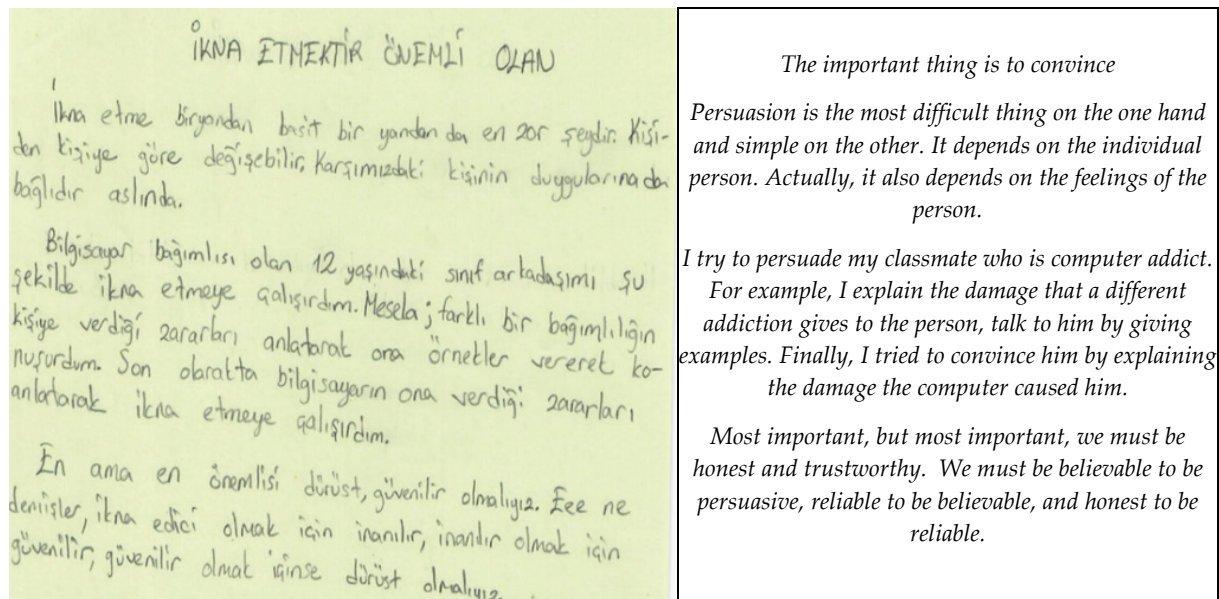 İKNA ETMEKTİR ÖNEMLİ OLAN
İkna etme biryandan basit bir yandan da en zor şeydir. Kişi-
den kişiye göre değişebilir, Karşımızdaki kişinin duygularına da
bağlıdır aslında.
Bilgisayar bağımlısı olan 12 yaşındaki sınıf arkadaşımı şu
şekilde ikna etmeye çalışırdım. Mesela; farklı bir bağımlılığın
kişiye verdiği zararları anlatarak ona örnekler vererek ko-
nuşurdum. Son olarakta bilgisayarın ona verdiği zararları
anlatarak ikna etmeye çalışırdım.
En ama en önemlisi dürüst, güvenilir olmalıyız. Eee ne
demişler, ikna edici olmak için inanılır, inanılır olmak için
güvenilir, güvenilir olmak içinse dürüst olmalıyız.
The important thing is to convince
Persuasion is the most difficult thing on the one hand
and simple on the other. It depends on the individual
person. Actually, it also depends on the feelings of the
person.
I try to persuade my classmate who is computer addict.
For example, I explain the damage that a different
addiction gives to the person, talk to him by giving
examples. Finally, I tried to convince him by explaining
the damage the computer caused him.
Most important, but most important, we must be
honest and trustworthy. We must be believable to be
persuasive, reliable to be believable, and honest to be
reliable.